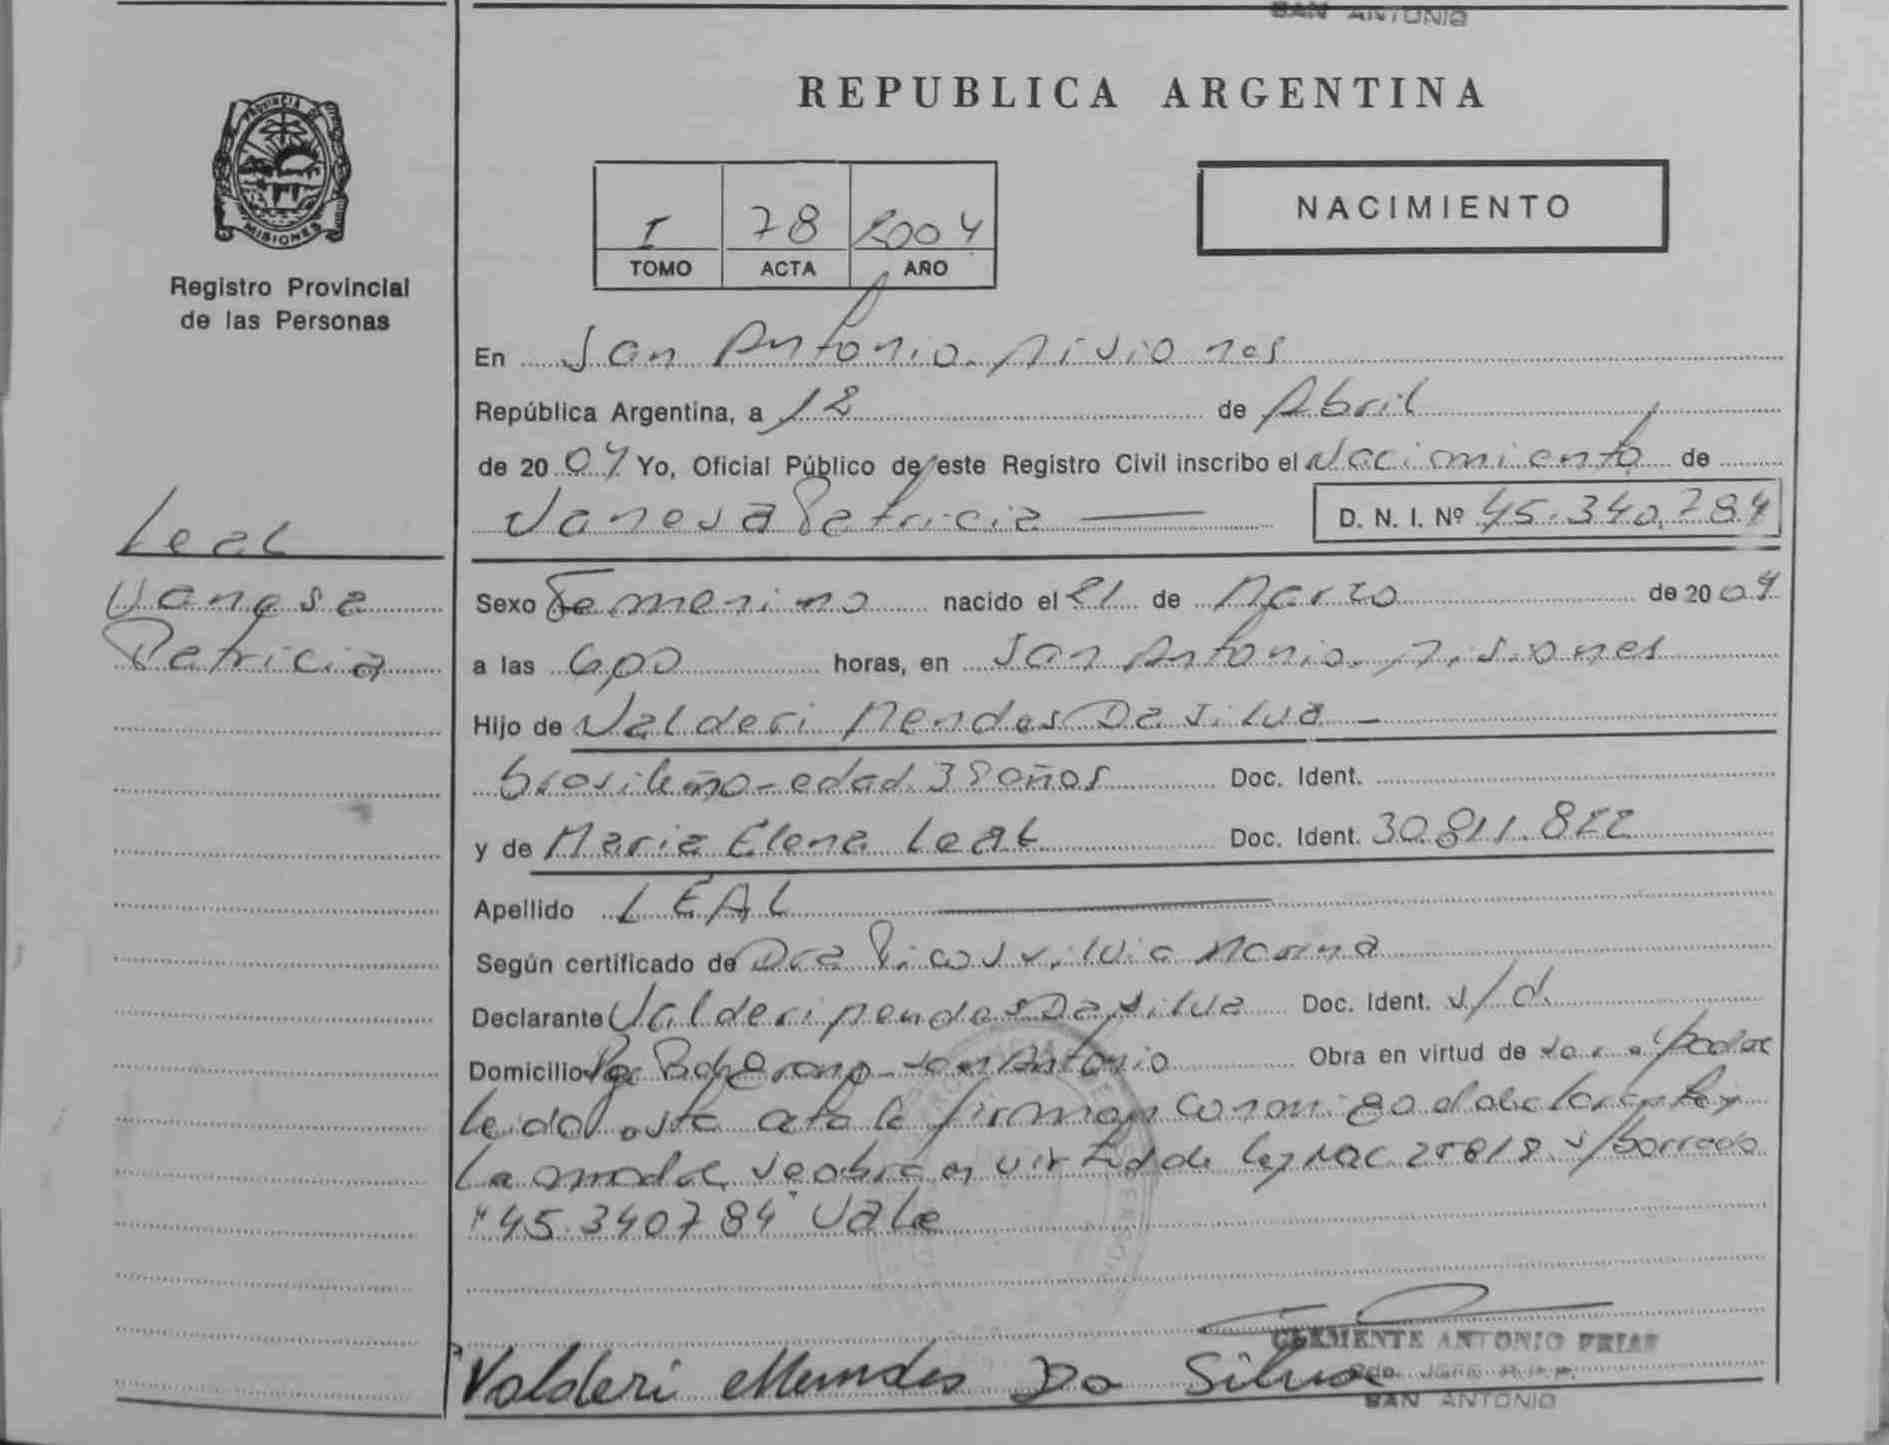 SAN ANTONIO
REPUBLICA ARGENTINA
PROVINCIA DE
MISIONES
Registro Provincial
de las Personas
I 78 2004
TOMO ACTA AÑO
NACIMIENTO
En San Antonio. Misiones
República Argentina, a 12 de Abril
de 20 04 Yo, Oficial Público de este Registro Civil inscribo el Nacimiento de
Vanesa Patricia
D. N. I. Nº 45.340.784
Leal
Vanesa
Patricia
Sexo Femenino nacido el 21 de Marzo de 20 04
a las 6,00 horas, en San Antonio. Misiones
Hijo de Valderi Mendes Da Silva
brasileño - edad 38 años Doc. Ident.
y de Maria Elena Leal Doc. Ident. 30.811.822
Apellido LEAL
Según certificado de Dra Silvia
Declarante Valderi Mendes Da Silva Doc. Ident. s/d.
Domicilio San Antonio Obra en virtud de ser el padre
leida esta acta la firman conmigo el declarante y
la madre se obra en virtud de ley Nac. 25818 s/borrado
"45.340784" Vale
Valderi Mendes Da Silva
CLEMENTE ANTONIO FRIAS
SAN ANTONIO